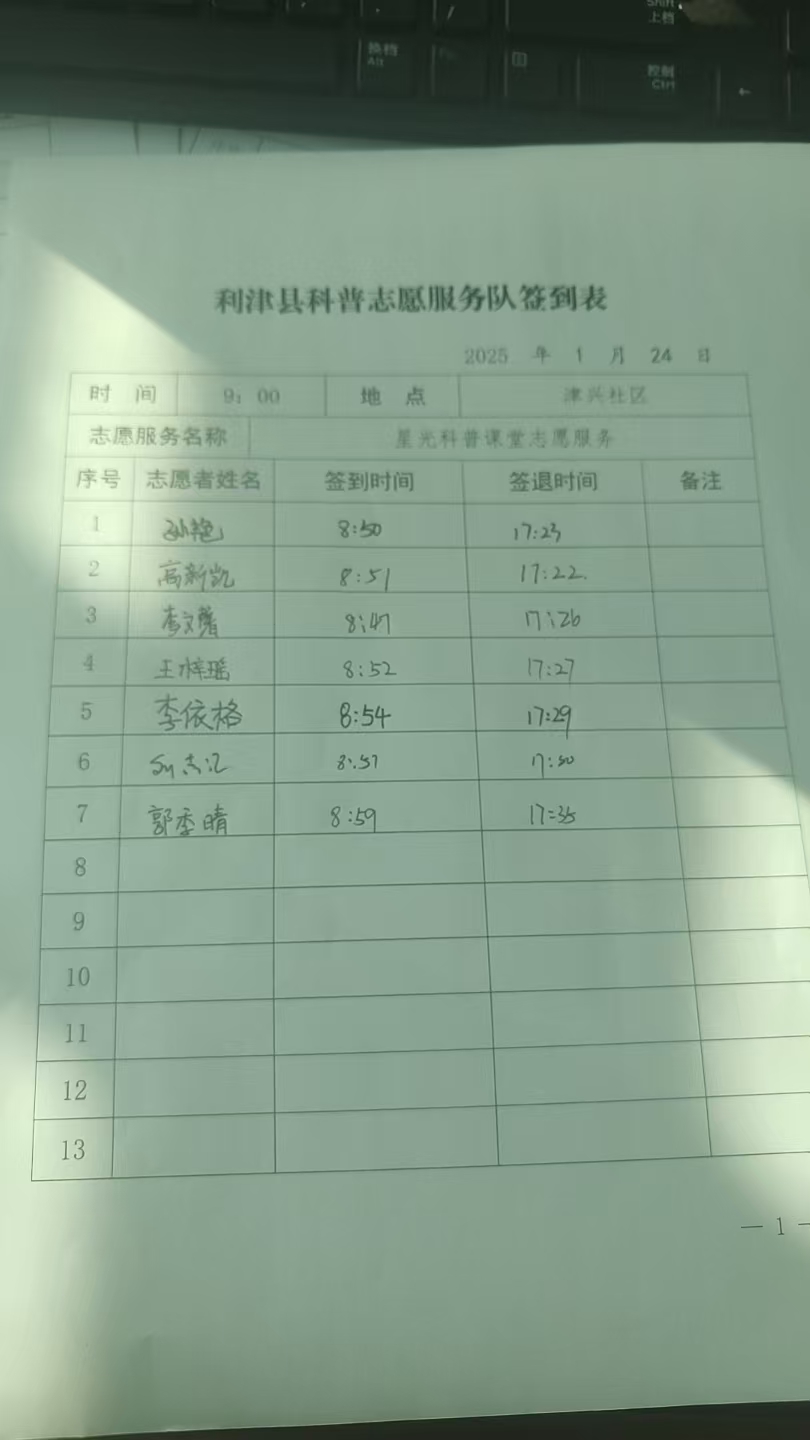 Shift
上档
换档
Alt
控制
Ctrl
←
利津县科普志愿服务队签到表
2025 年 1 月 24 日
时 间 9：00 地 点 津兴社区
志愿服务名称 星光科普课堂志愿服务
序号 志愿者姓名 签到时间 签退时间 备注
1 孙艳 8:50 17:23
2 高新凯 8:51 17:22.
3 李文 8:47 17:26
4 王梓瑶 8:52 17:27
5 李依格 8:54 17:29
6 8:57 17:30
7 郭季晴 8:59 17:35
8
9
10
11
12
13
— 1 —